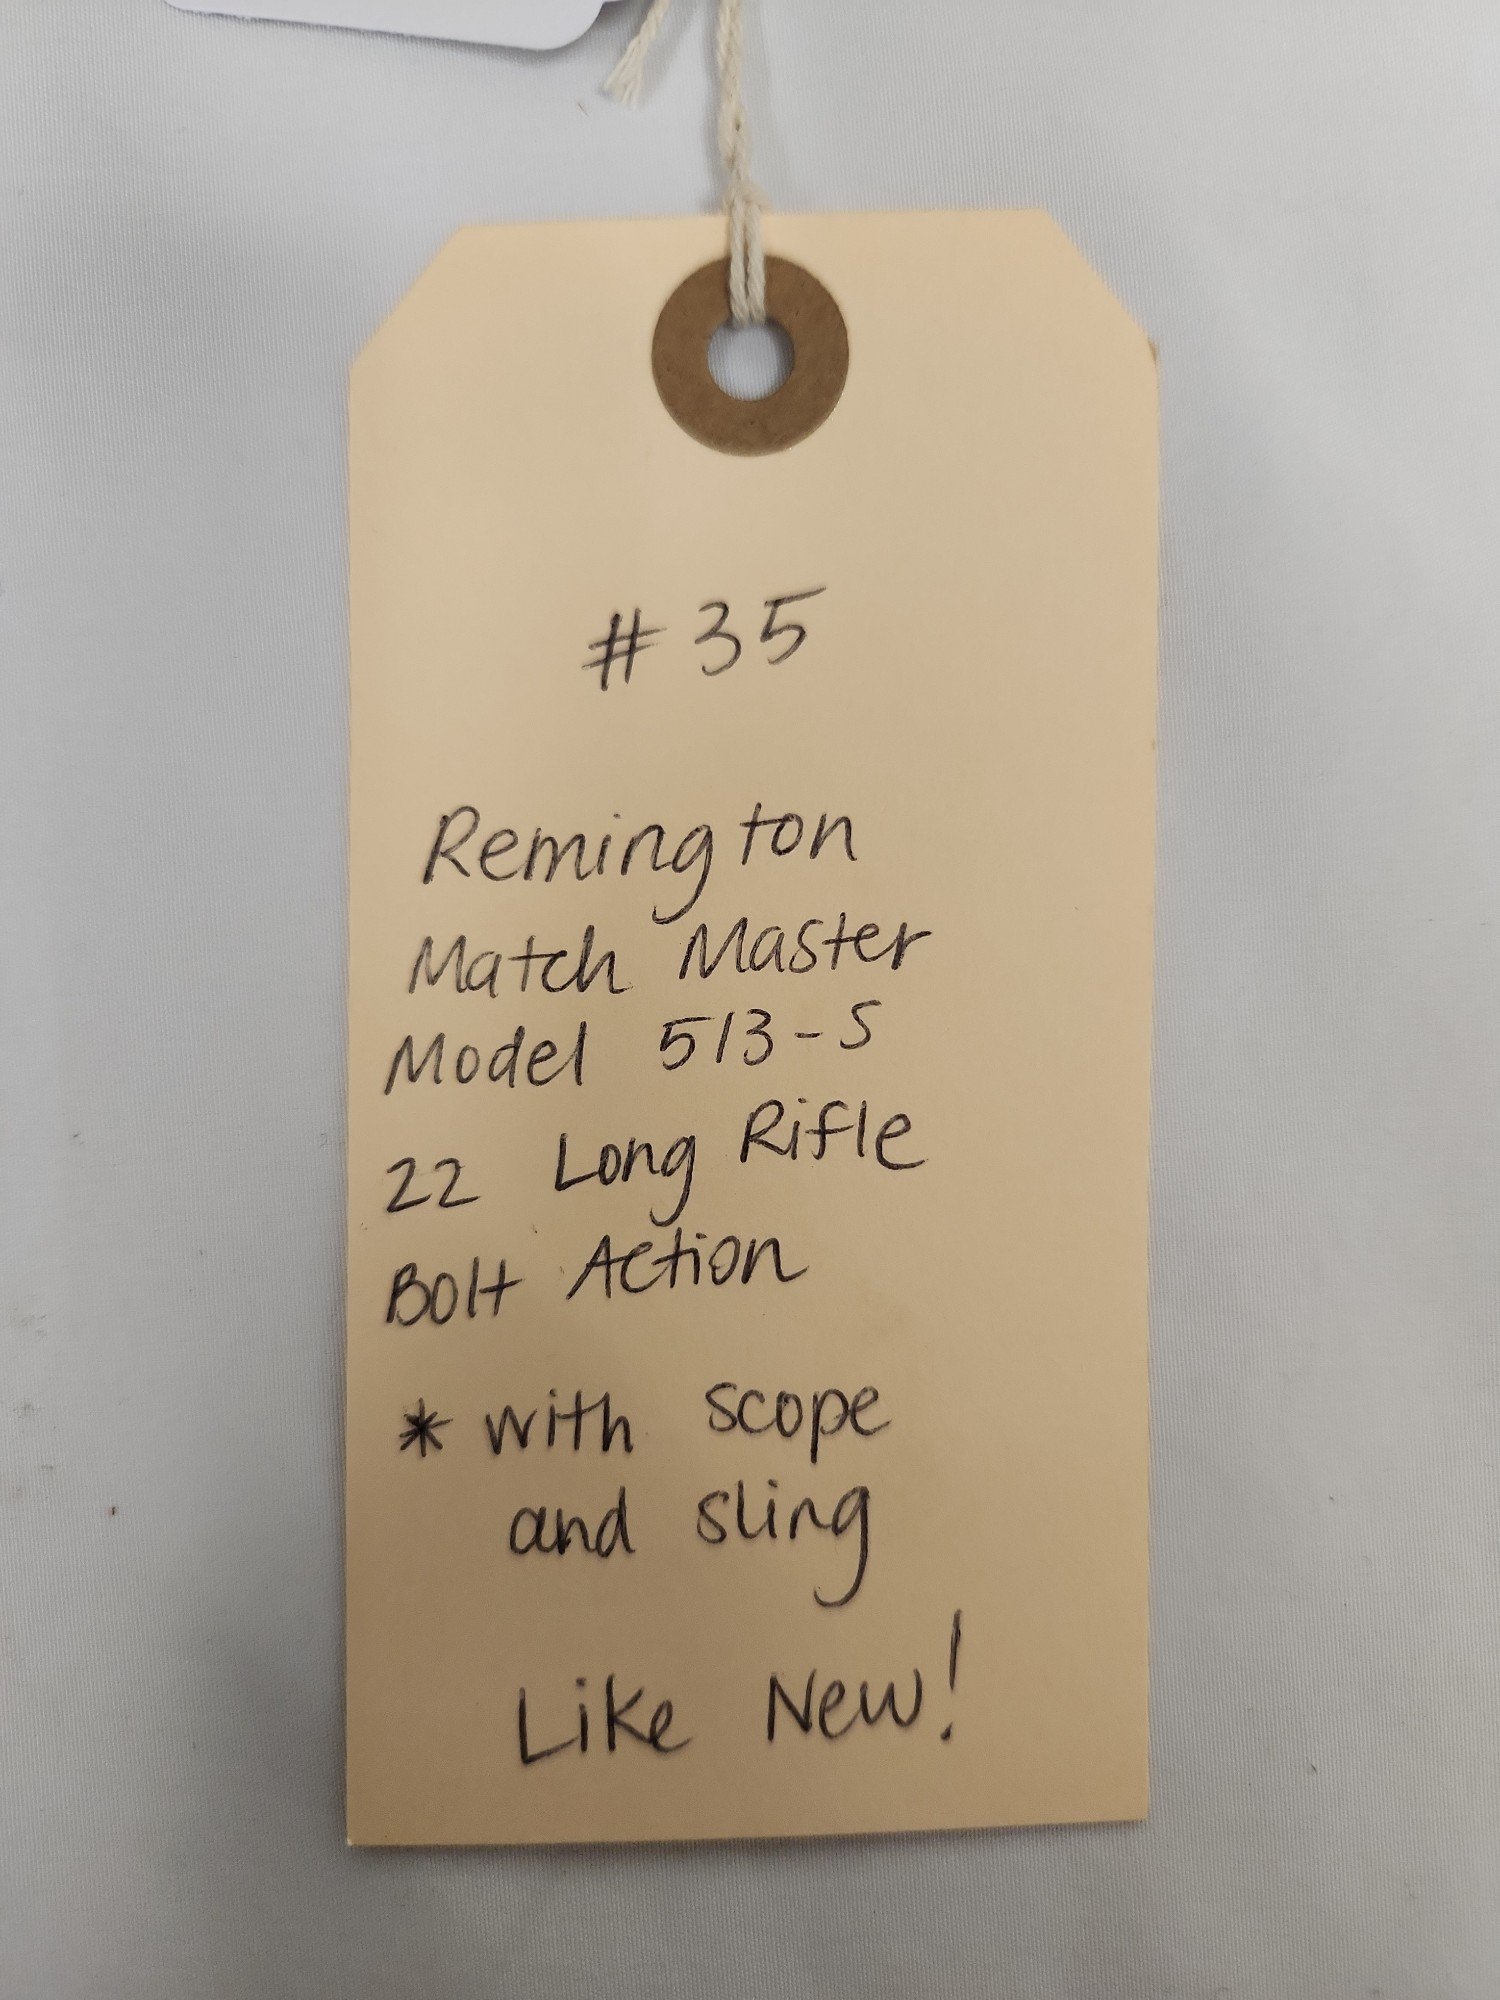 #35
Remington
Match Master
Model 513-S
22 Long Rifle
Bolt Action
* with scope
and sling
Like New!